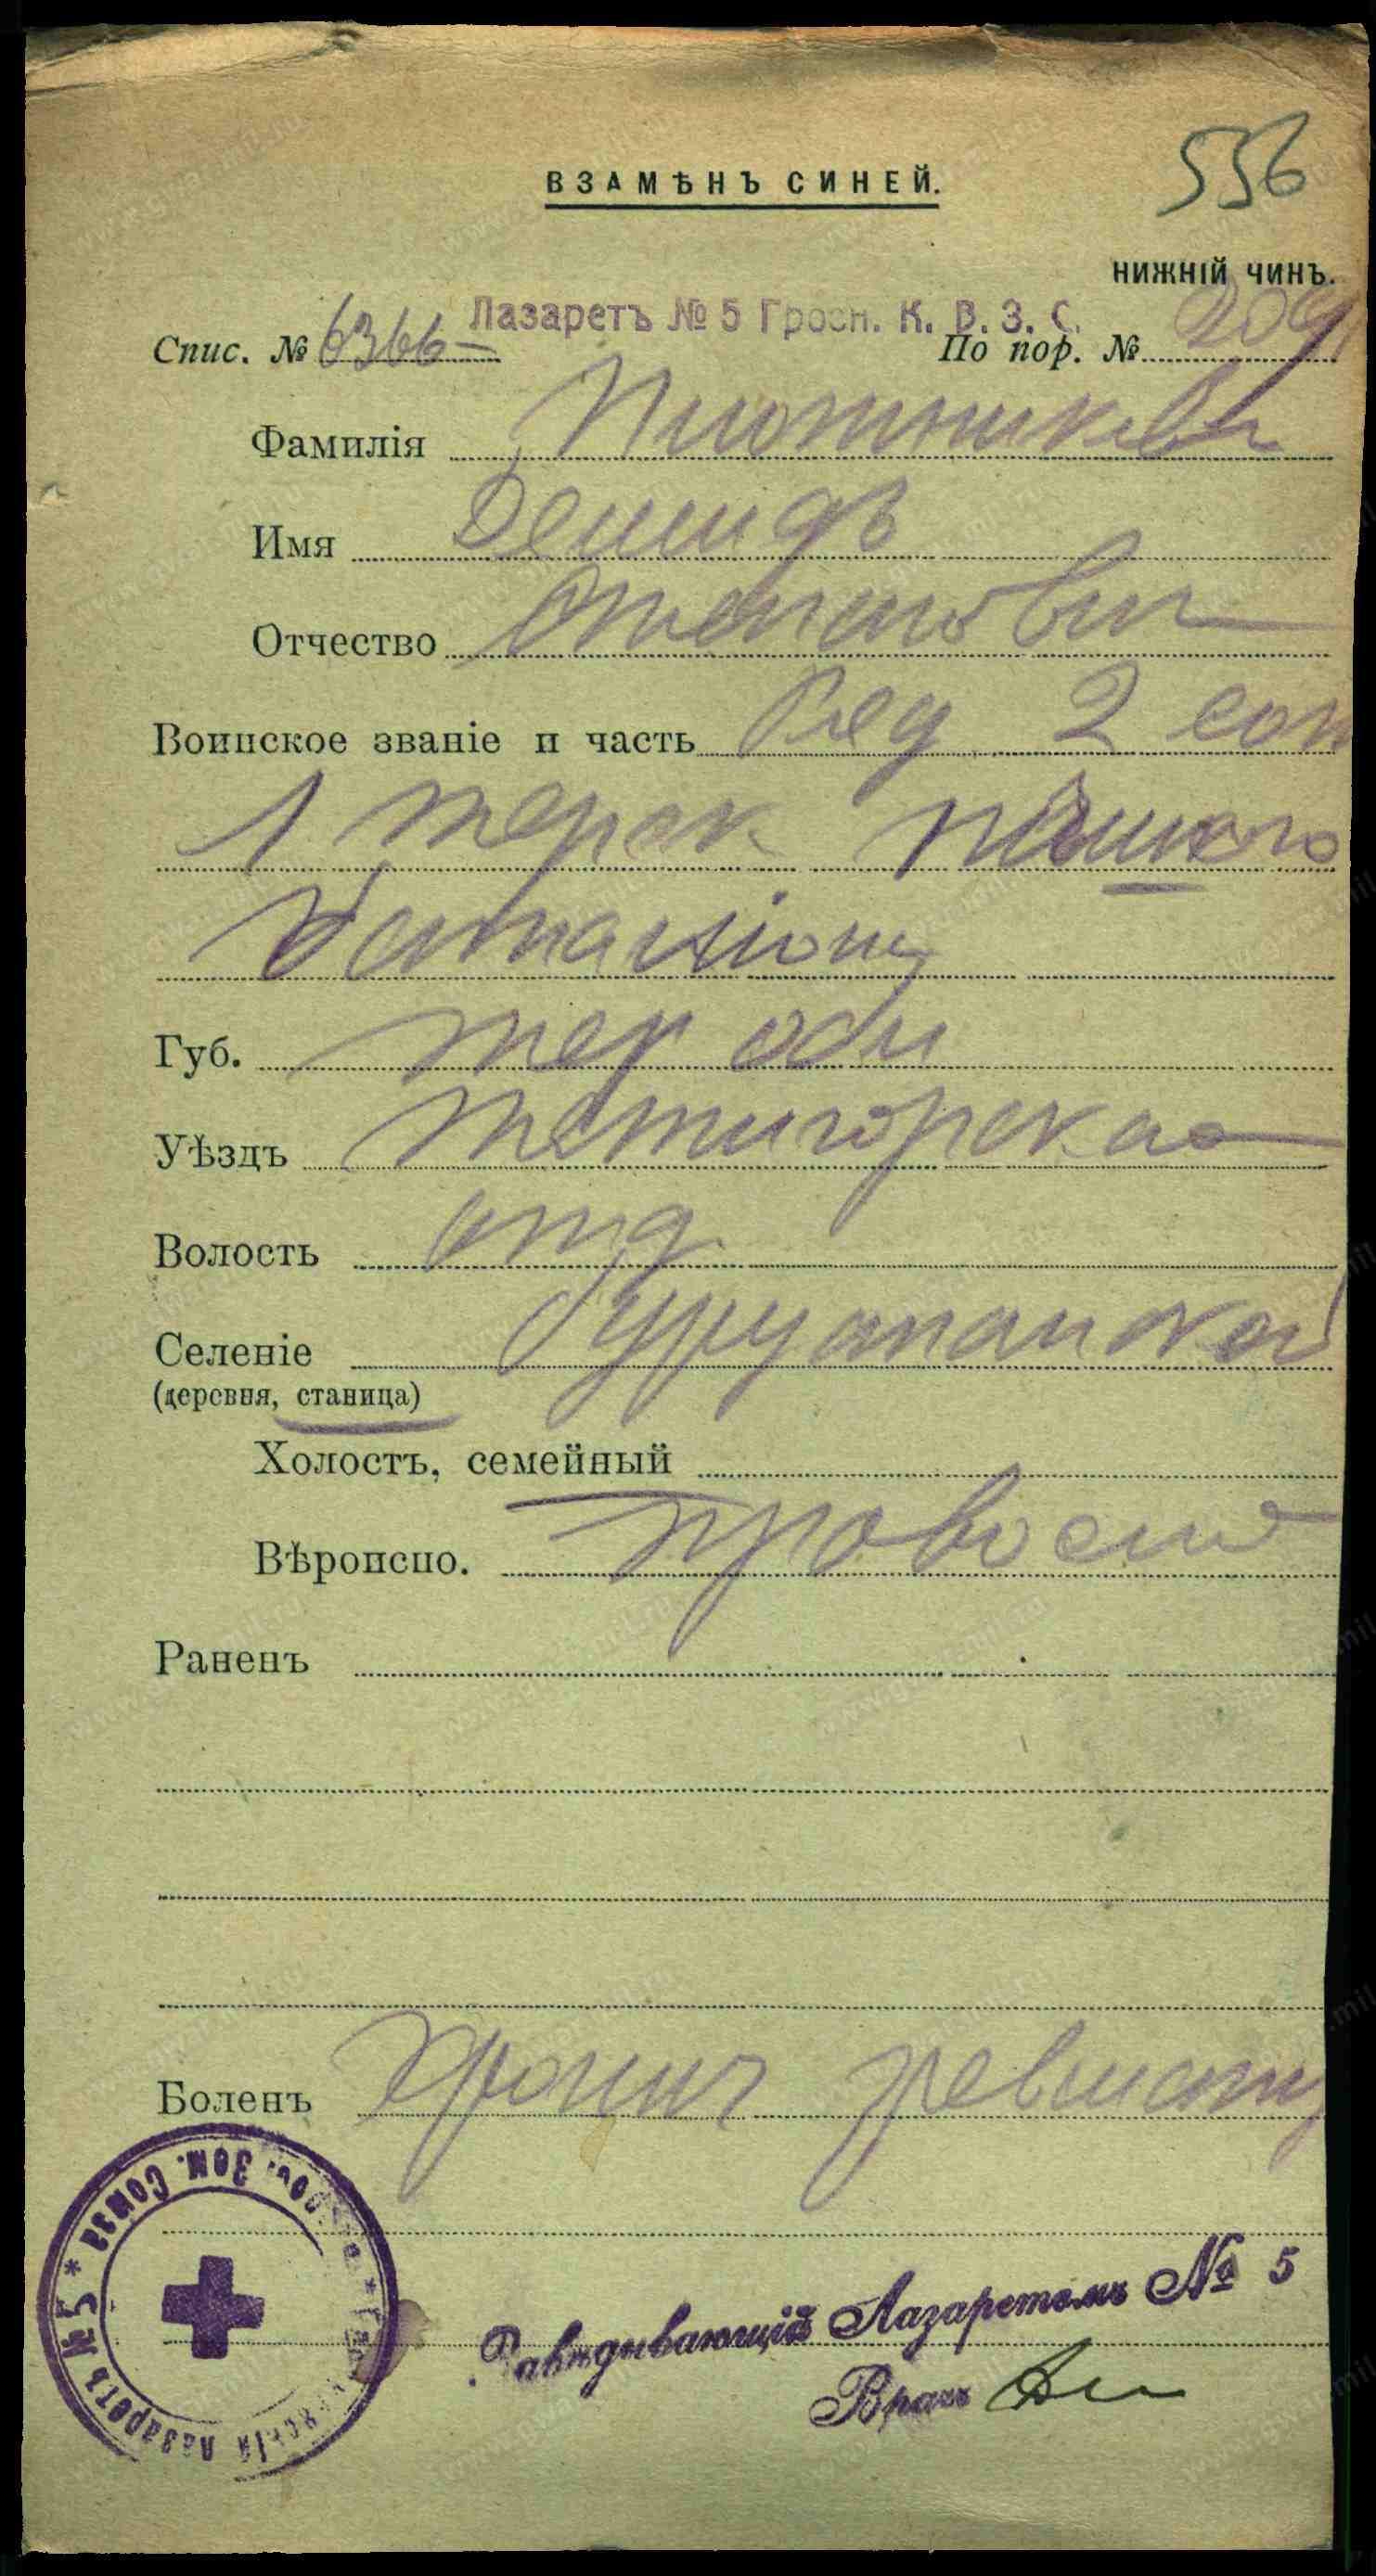 556
ВЗАМѢНЪ СИНЕЙ.
НИЖНІЙ ЧИНЪ.
Лазаретъ № 5 Грозн. К. В. З. С.
Спис. № 6366 По пор. № 209
Фамилія Плотниковъ
Имя Демидъ
Отчество Степанович
Воинское званіе и часть Ряд 2 сот
1 Терск пѣшаго
баталіона
Губ. Тер обл
Уѣздъ Пятигорскаго
Волость отд
Селеніе Бургустанской
(деревня, станица)
Холостъ, семейный
Вѣроиспо. правосл
Раненъ
Боленъ Хронич ревмат
Лазаретъ №5 * Зем. Союза
Завѣдывающій Лазаретомъ № 5
Врачъ